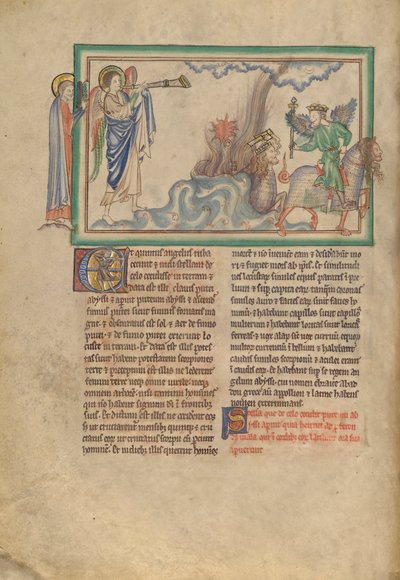 Et quintus angelus tuba
cecinit & vidi stellam de
celo cecidisse in terram &
data est illi clavis putei
abyssi & aperuit puteum abyssi & ascend
fumus putei sicut fumus fornacis ma
gne & obscuratus est sol & aer de fumo
putei & de fumo putei exierunt lo
custe in terram & data est illis potes
tas sicut habent potestatem scorpiones
terre & preceptum est illis ne lederent
fenum terre neque omne viride neque
omnem arborem nisi tantum homines
qui non habent signum in frontibus
suis. Et dictum est illis ne occiderent eos
ut cruciarent mensibus quinque & cru
ciatus eorum ut cruciatus scorpii cum percutit
hominem. Et in diebus illis querent homines
mortem & non invenient eam & desiderabunt mo
ri & fugiet mors ab ipsis. Et
similes equis paratis in
& super capita earum tanquam corone
similes auro & facies earum sicut facies ho
minum & habebant capillos sicut capillos
mulierum & habebant loricas sicut loricas
ferreas & vox alarum sicut vox curruum equorum
multorum currentium in bellum & habebant
caudas similes scorpionum & aculei erant
in caudis earum & habebant super se regem an
gelum abyssi cui nomen ebraice abad
don grece autem appollion & latine habens
nomen exterminans.
Stella que de celo cecidit puteum ab
yssi aperuit quia
mala que in cordibus sua
apuerunt